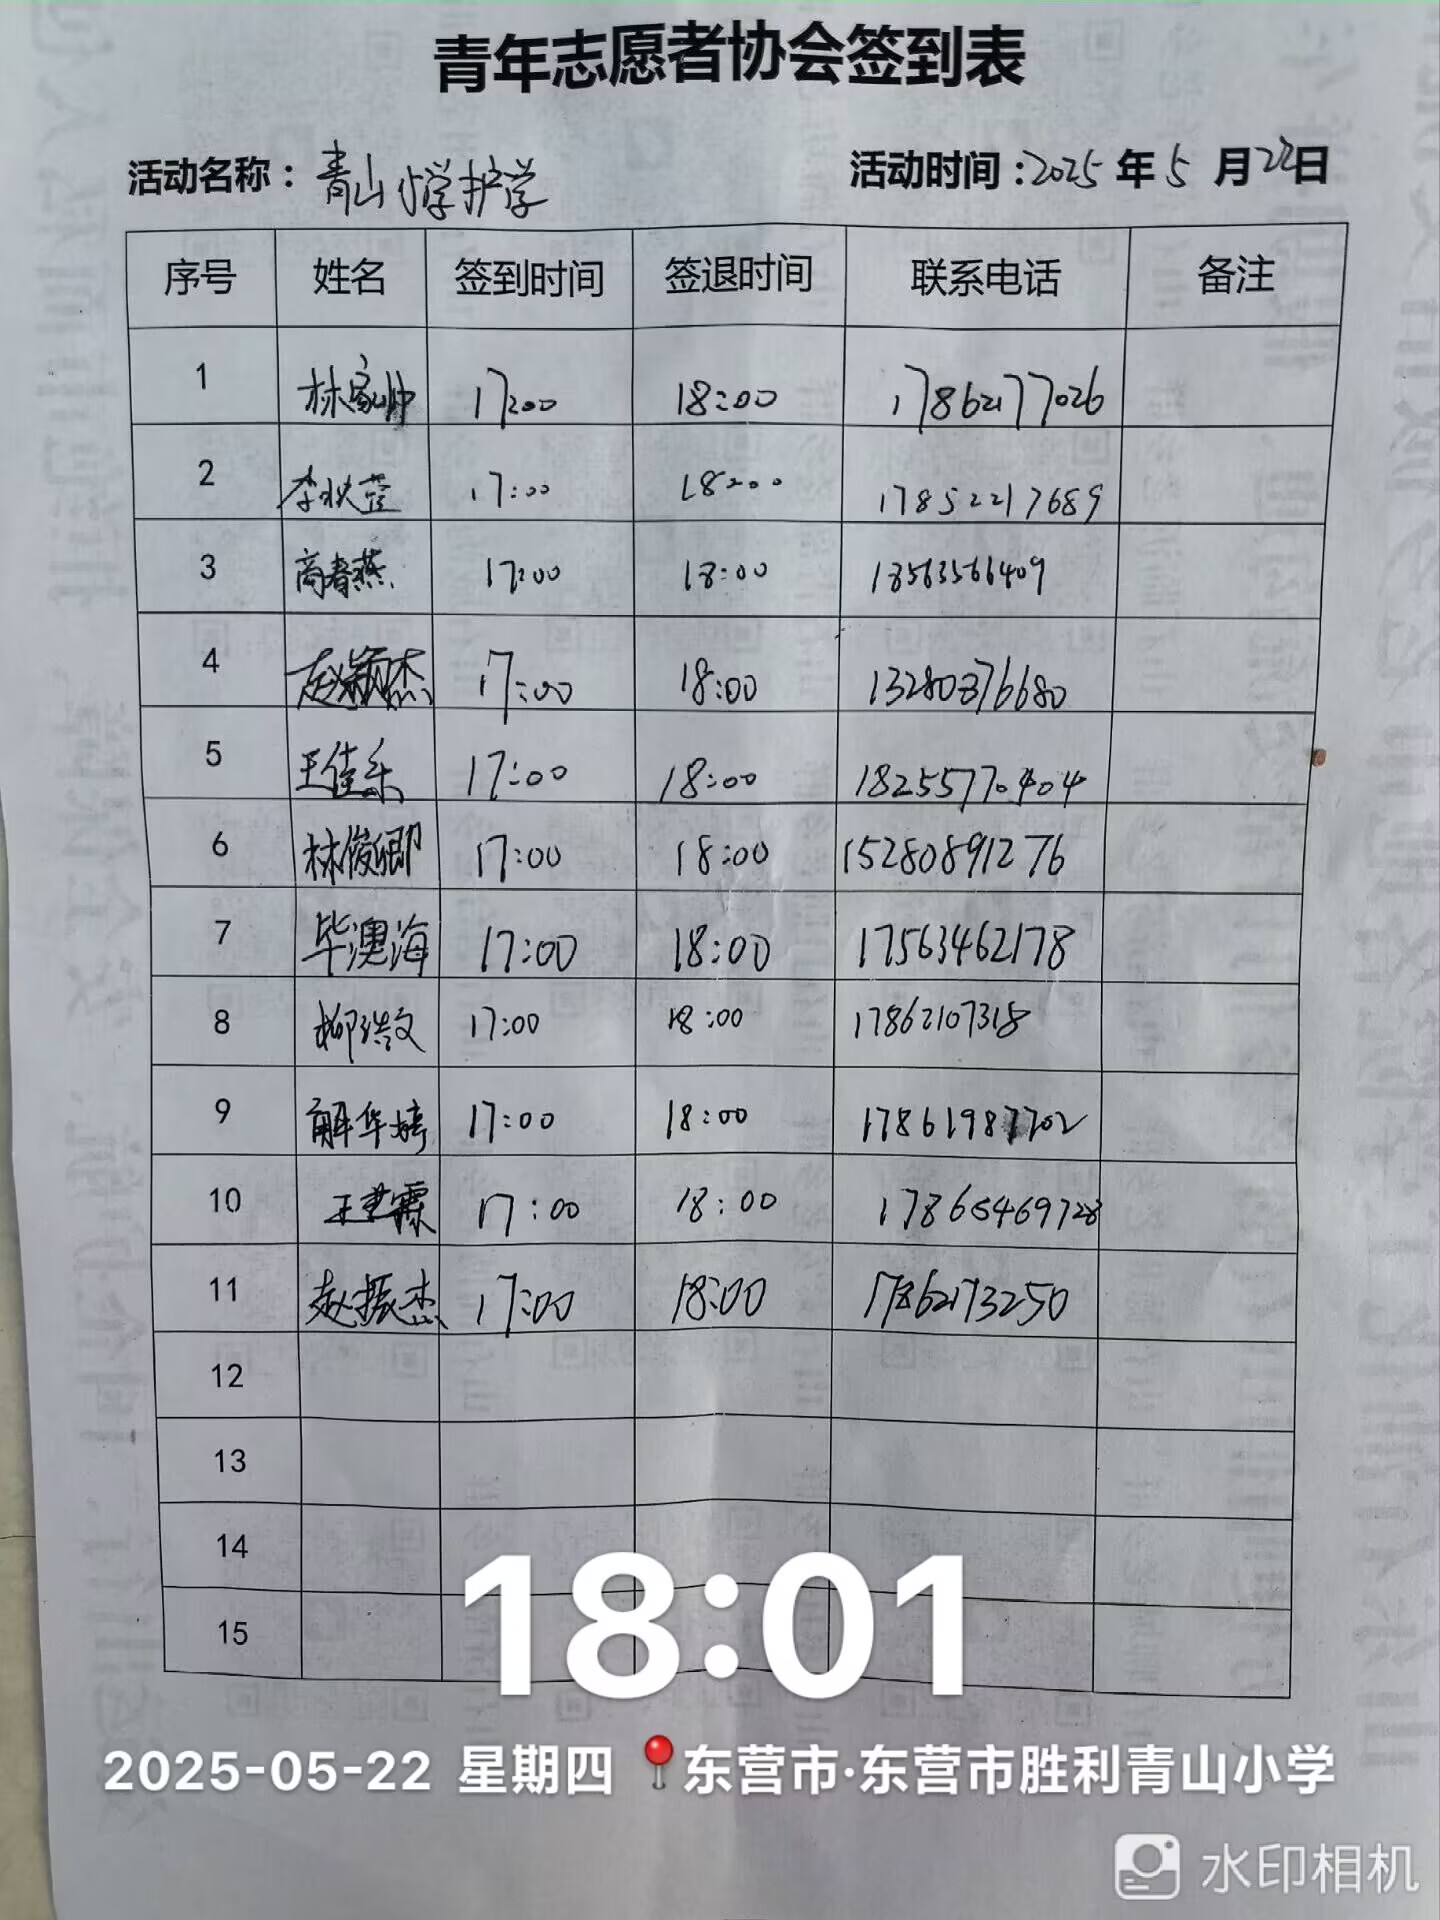 青年志愿者协会签到表
活动名称：青山小学护学 活动时间：2025年5月22日
序号 姓名 签到时间 签退时间 联系电话 备注
1 林家帅 17:00 18:00 17862177026
2 李秋莹 17:00 18:00 17852217689
3 商春燕 17:00 18:00 18563566409
4 赵颖杰 17:00 18:00 13280376680
5 王佳乐 17:00 18:00 18255770404
6 林俊卿 17:00 18:00 15280891276
7 毕澳海 17:00 18:00 17563462178
8 柳浩文 17:00 18:00 17862107318
9 解华婷 17:00 18:00 17861987702
10 王 霖 17:00 18:00 17865469728
11 赵振杰 17:00 18:00 17862173250
12
13
14
15
18:01
2025-05-22 星期四 东营市·东营市胜利青山小学
水印相机